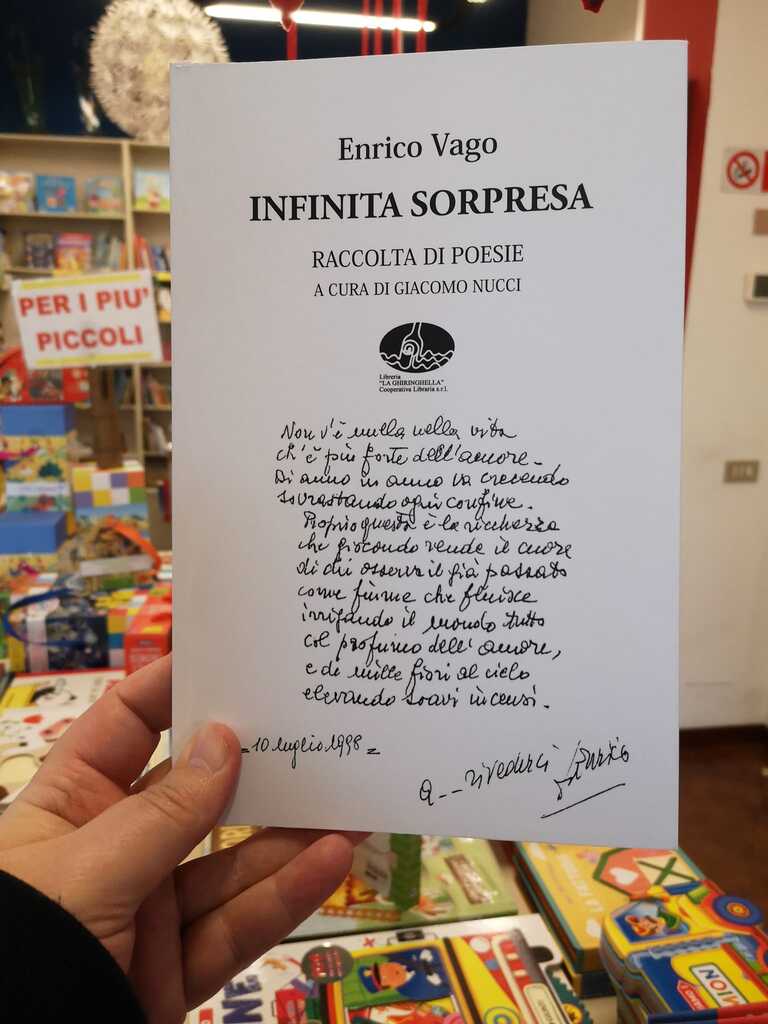 Enrico Vago
INFINITA SORPRESA
RACCOLTA DI POESIE
A CURA DI GIACOMO NUCCI
Libreria
"LA GHIRINGHELLA"
Cooperativa Libraria s.r.l.
Non v'è nulla nella vita
ch'è più forte dell'amore.
Di anno in anno va crescendo
sovrastando ogni confine.
Proprio questa è la ricchezza
che giocondo rende il cuore
di chi osserva il già passato
come fiume che fluisce
irrigando il mondo tutto
col profumo dell'amore,
e di mille fiori al cielo
elevando soavi incensi.
= 10 luglio 1998 =
a -- rivederci Enrico
PER I PIU'
PICCOLI